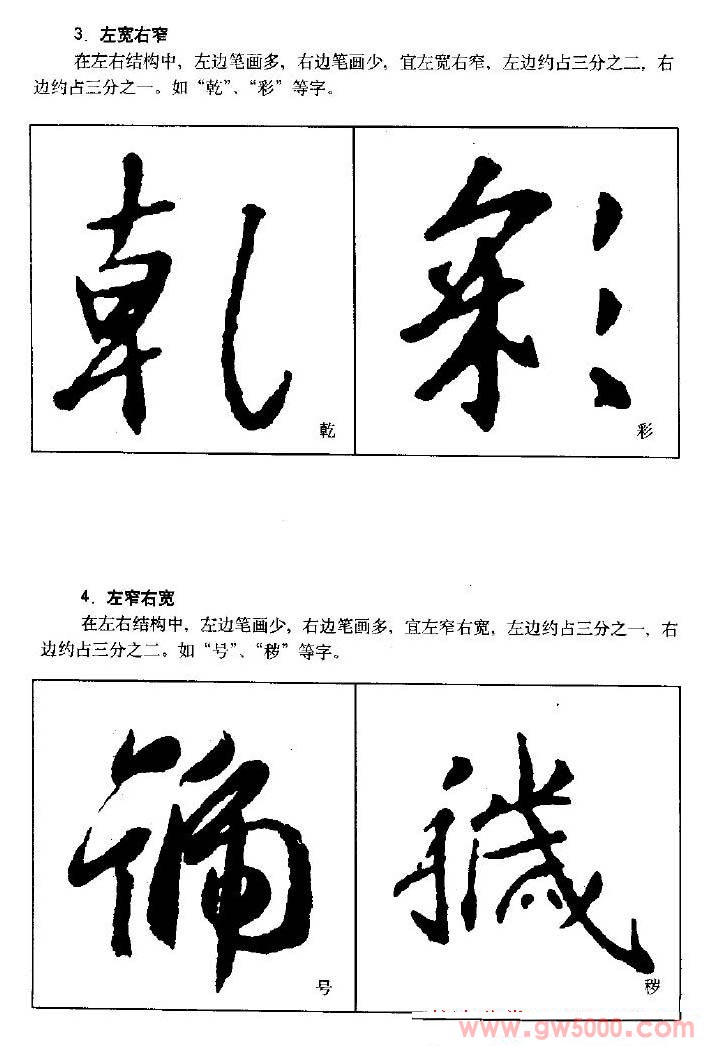 3. 左宽右窄
在左右结构中，左边笔画多，右边笔画少，宜左宽右窄，左边约占三分之二，右
边约占三分之一。如“乾”、“彩”等字。
乾 彩
乾 彩
4. 左窄右宽
在左右结构中，左边笔画少，右边笔画多，宜左窄右宽，左边约占三分之一，右
边约占三分之二。如“号”、“秽”等字。
號 穢
号 秽
www.gw5000.com